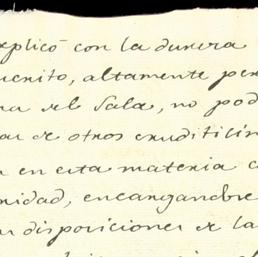 xplicó con la dureza
uerito, altamente pen
na del Sala, no pod
ar de otros eruditísi
a en esta materia c
nidad, encargandose
disposiciones de la